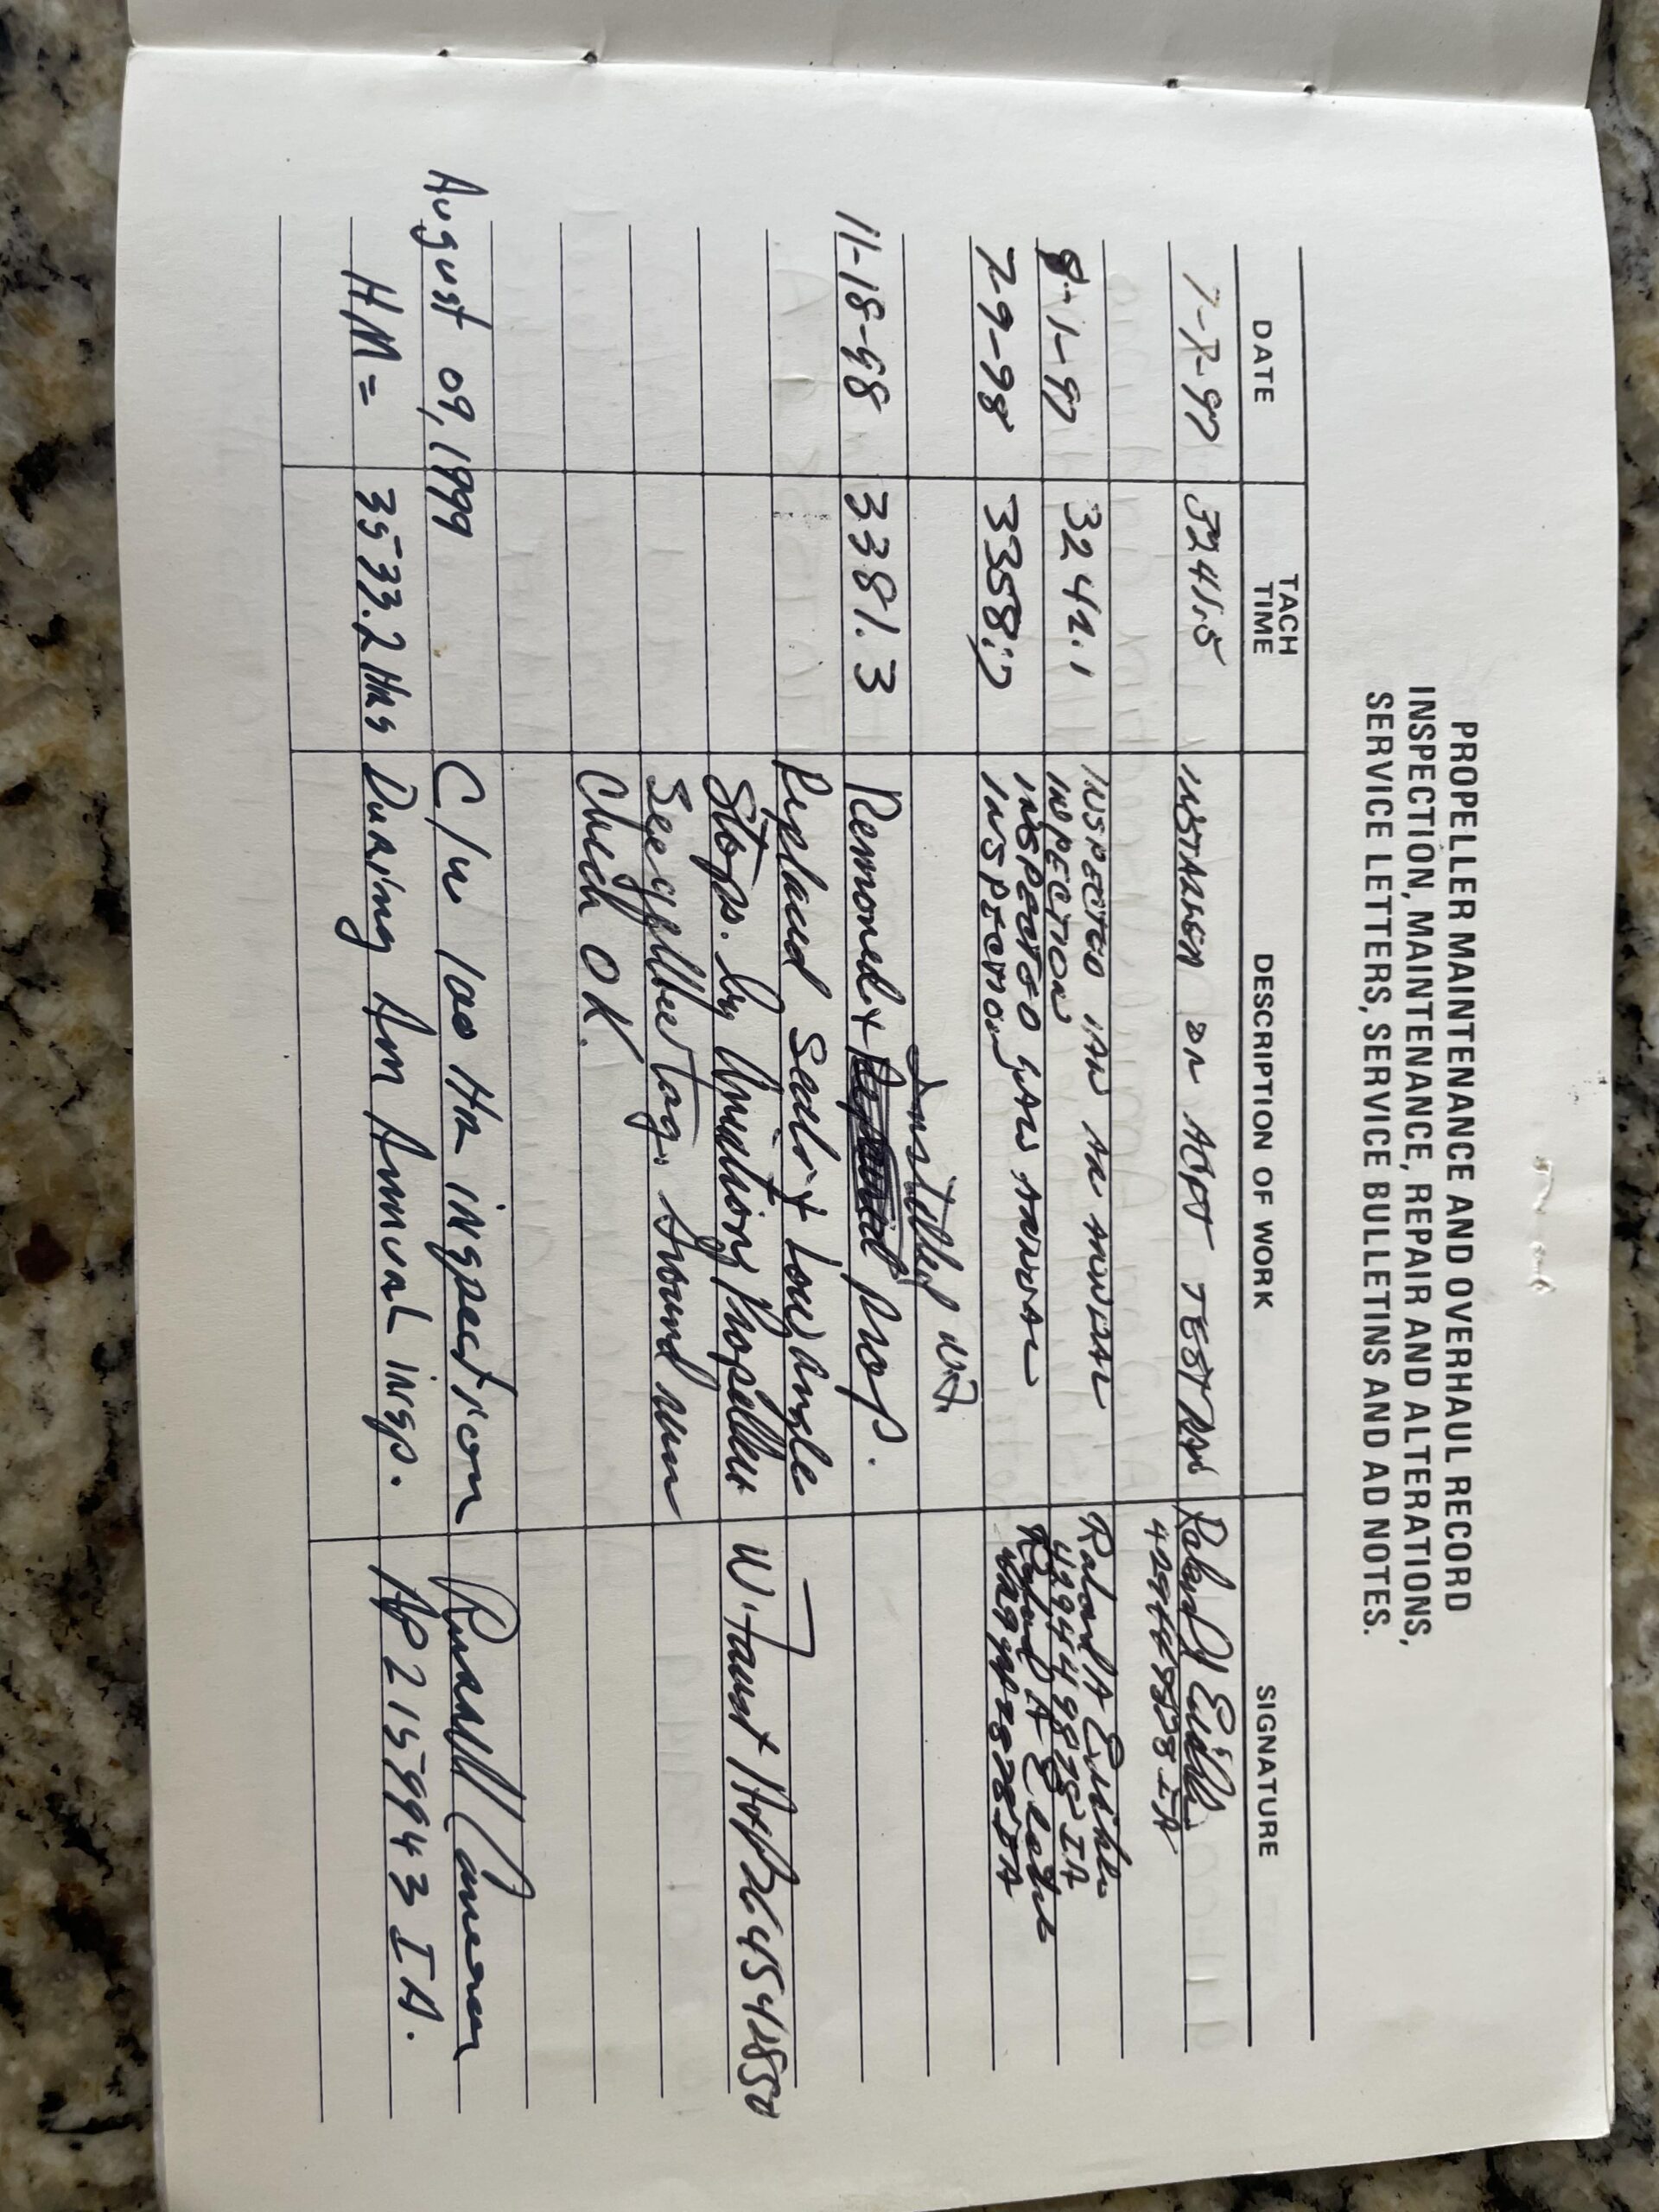 PROPELLER MAINTENANCE AND OVERHAUL RECORD
INSPECTION, MAINTENANCE, REPAIR AND ALTERATIONS,
SERVICE LETTERS, SERVICE BULLETINS AND AD NOTES.
DATE TACH TIME DESCRIPTION OF WORK SIGNATURE
7-7-97 3241.5 ON ACFT TEST RAN Roland A
IA
8-1-97 3242.1 INSPECTED IAW AN ANNUAL Roland A
INPECTION IA
7-9-98 3358.7 INSPECTED IAW ANNUAL Roland A
INSPECTION IA
Instilled
11-18-98 3381.3 Removed + prop.
Replaced Seals + Low angle
Stops. by Propeller W. Faust A&P 264541850
See yellow tag. Ground run
Check OK.
August 09, 1999 C/W 100 Hr inspection Randall Cameron
HM = 3533.2 Hrs During An Annual insp. AP 2159943 IA.